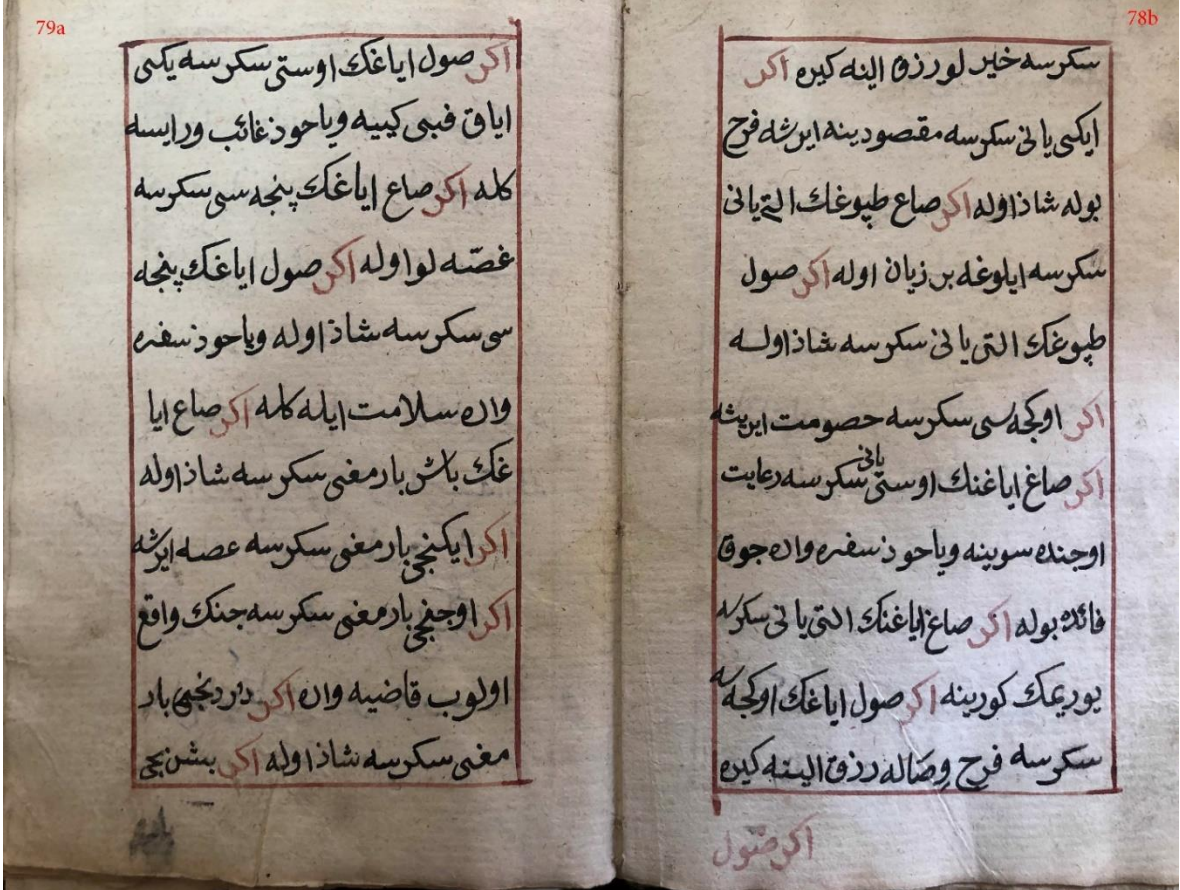 78b
سكرسه خير لو رزق النه كيره اكر
ايكى يانى سكرسه مقصودينه ايرشه فرح
بوله شاذ اوله اكر صاغ طپوغك التى يانى
سكرسه ايلوغه بر زيان اوله اكر صول
طپوغك التى يانى سكرسه شاذ اولسه
اكر اوكجه سى سكرسه خصومت ايريشه
اكر صاغ اياغنك اوستى يانى سكرسه رعايت
اوجنده سوينه وياحوذ سفره واره جوق
فائده بوله اكر صاغ اياغنك التى يانى سكرسه
يوريمك كورينه اكر صول اياغك اوكجه سه
سكرسه فرح وصاله رزق الينه كيره
اكر صول
79a
اكر صول اياغك اوستى سكرسه يكى
اياق قبى كييه وياحوذ غائب ورايسه
كله اكر صاع اياغك پنجه سى سكرسه
غصّه لو اوله اكر صول اياغك پنجه
سى سكرسه شاذ اوله وياحوذ سفره
واره سلامت ايله كله اكر صاع ايا
غك باش بارمغى سكرسه شاذ اوله
اكر ايكنجى بارمغى سكرسه عصه ايرشه
اكر اوجنجى بارمغى سكرسه جنك واقع
اولوب قاضيه واره اكر دردنجى بار
مغى سكرسه شاذ اوله اكر بشنجى